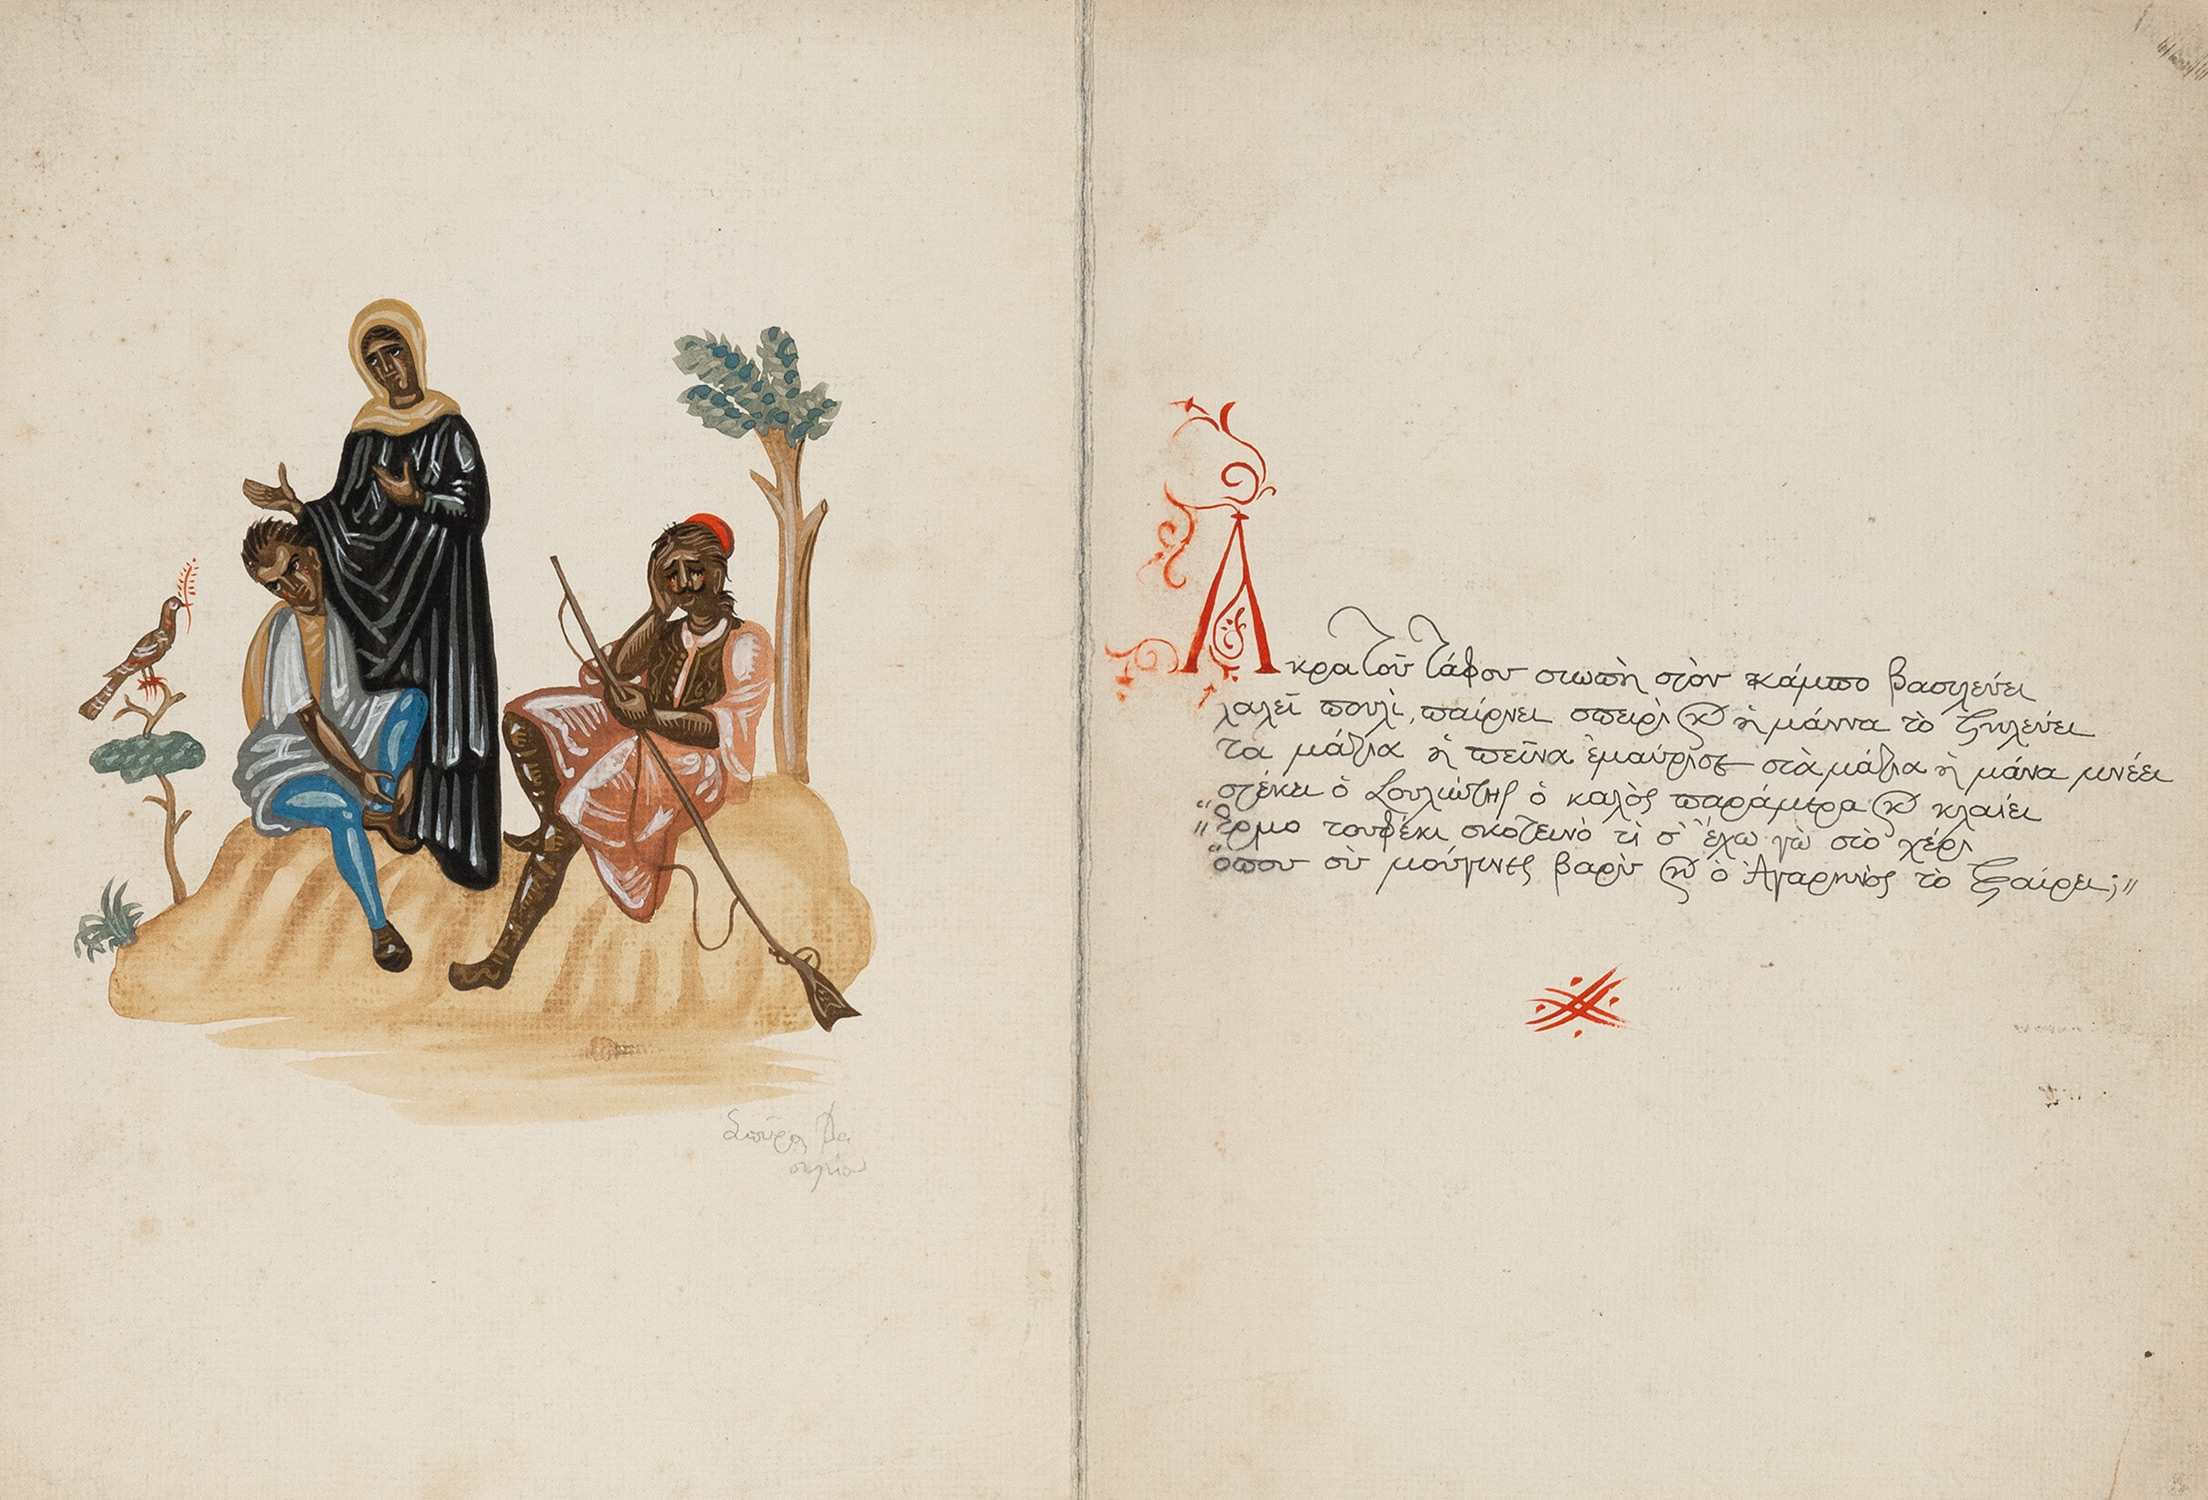 Σπύρος Βα
σιλείου
Ἄκρα τοῦ τάφου σιωπὴ στὸν κάμπο βασιλεύει
λαλεῖ πουλὶ, παίρνει σπειρὶ κ ἡ μάννα τὸ ζηλεύει
τα μάτια ἡ πεῖνα ἐμαύρισε στὰ μάτια ἡ μάνα μνέει
στέκει ὁ Σουλιώτης ὁ καλὸς παράμερα κ κλαίει
"Ἔρμο τουφέκι σκοτεινὸ τὶ σ' ἔχω γὼ στὸ χέρι
ὅπου σὺ μοὔγινες βαρὺ κ ὁ Ἀγαρηνὸς τὸ ξαίρει;"